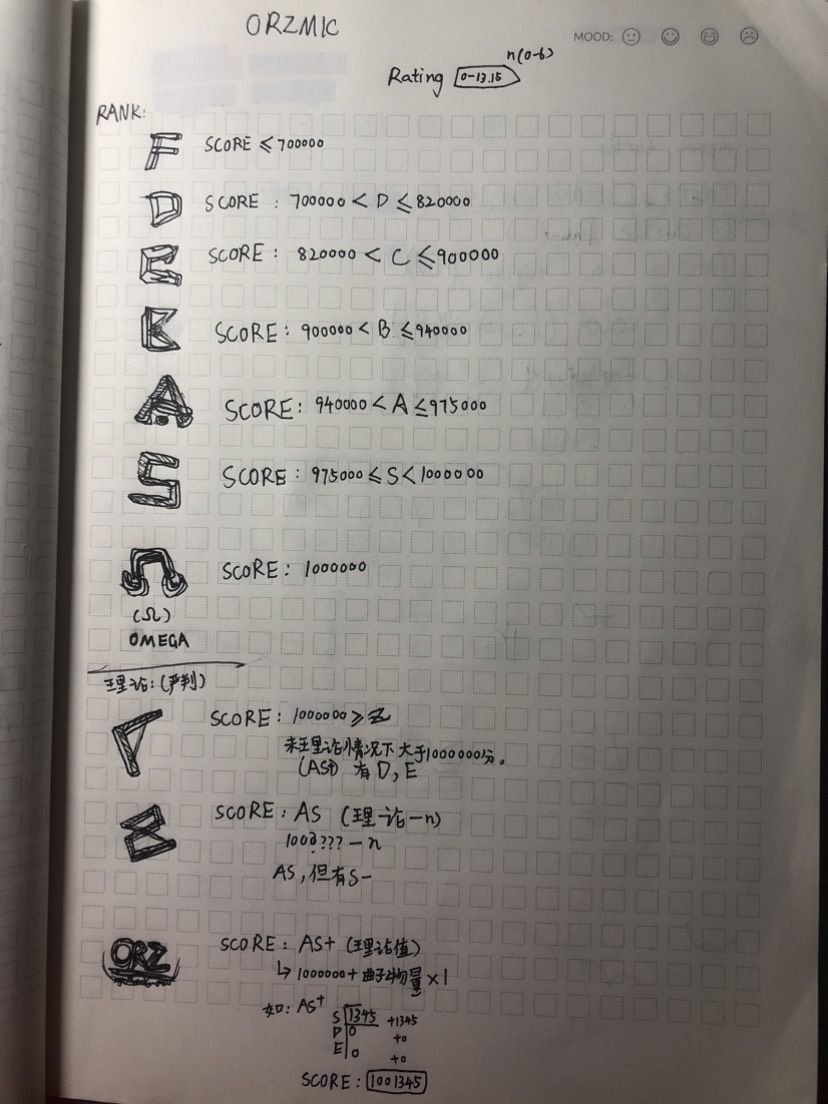 ORZMIC
MOOD:
n(0-6)
Rating 0-13.15
RANK:
F SCORE ≤700000
D SCORE : 700000 < D ≤820000
C SCORE : 820000 < C ≤900000
B SCORE : 900000 < B ≤940000
A SCORE : 940000 < A ≤975000
S SCORE : 975000 ≤ S < 1000000
Ω SCORE : 1000000
(Ω)
OMEGA
理论:(严判)
SCORE : 1000000 ≥
未理论情况下大于1000000分。
有D,E
SCORE : AS (理论-n)
100????-n
AS,但有S-
ORZ SCORE : AS+ (理论值)
↳1000000+曲子物量×1
如: AS+
S 1345 +1345
D 0 +0
E 0 +0
SCORE : 1001345